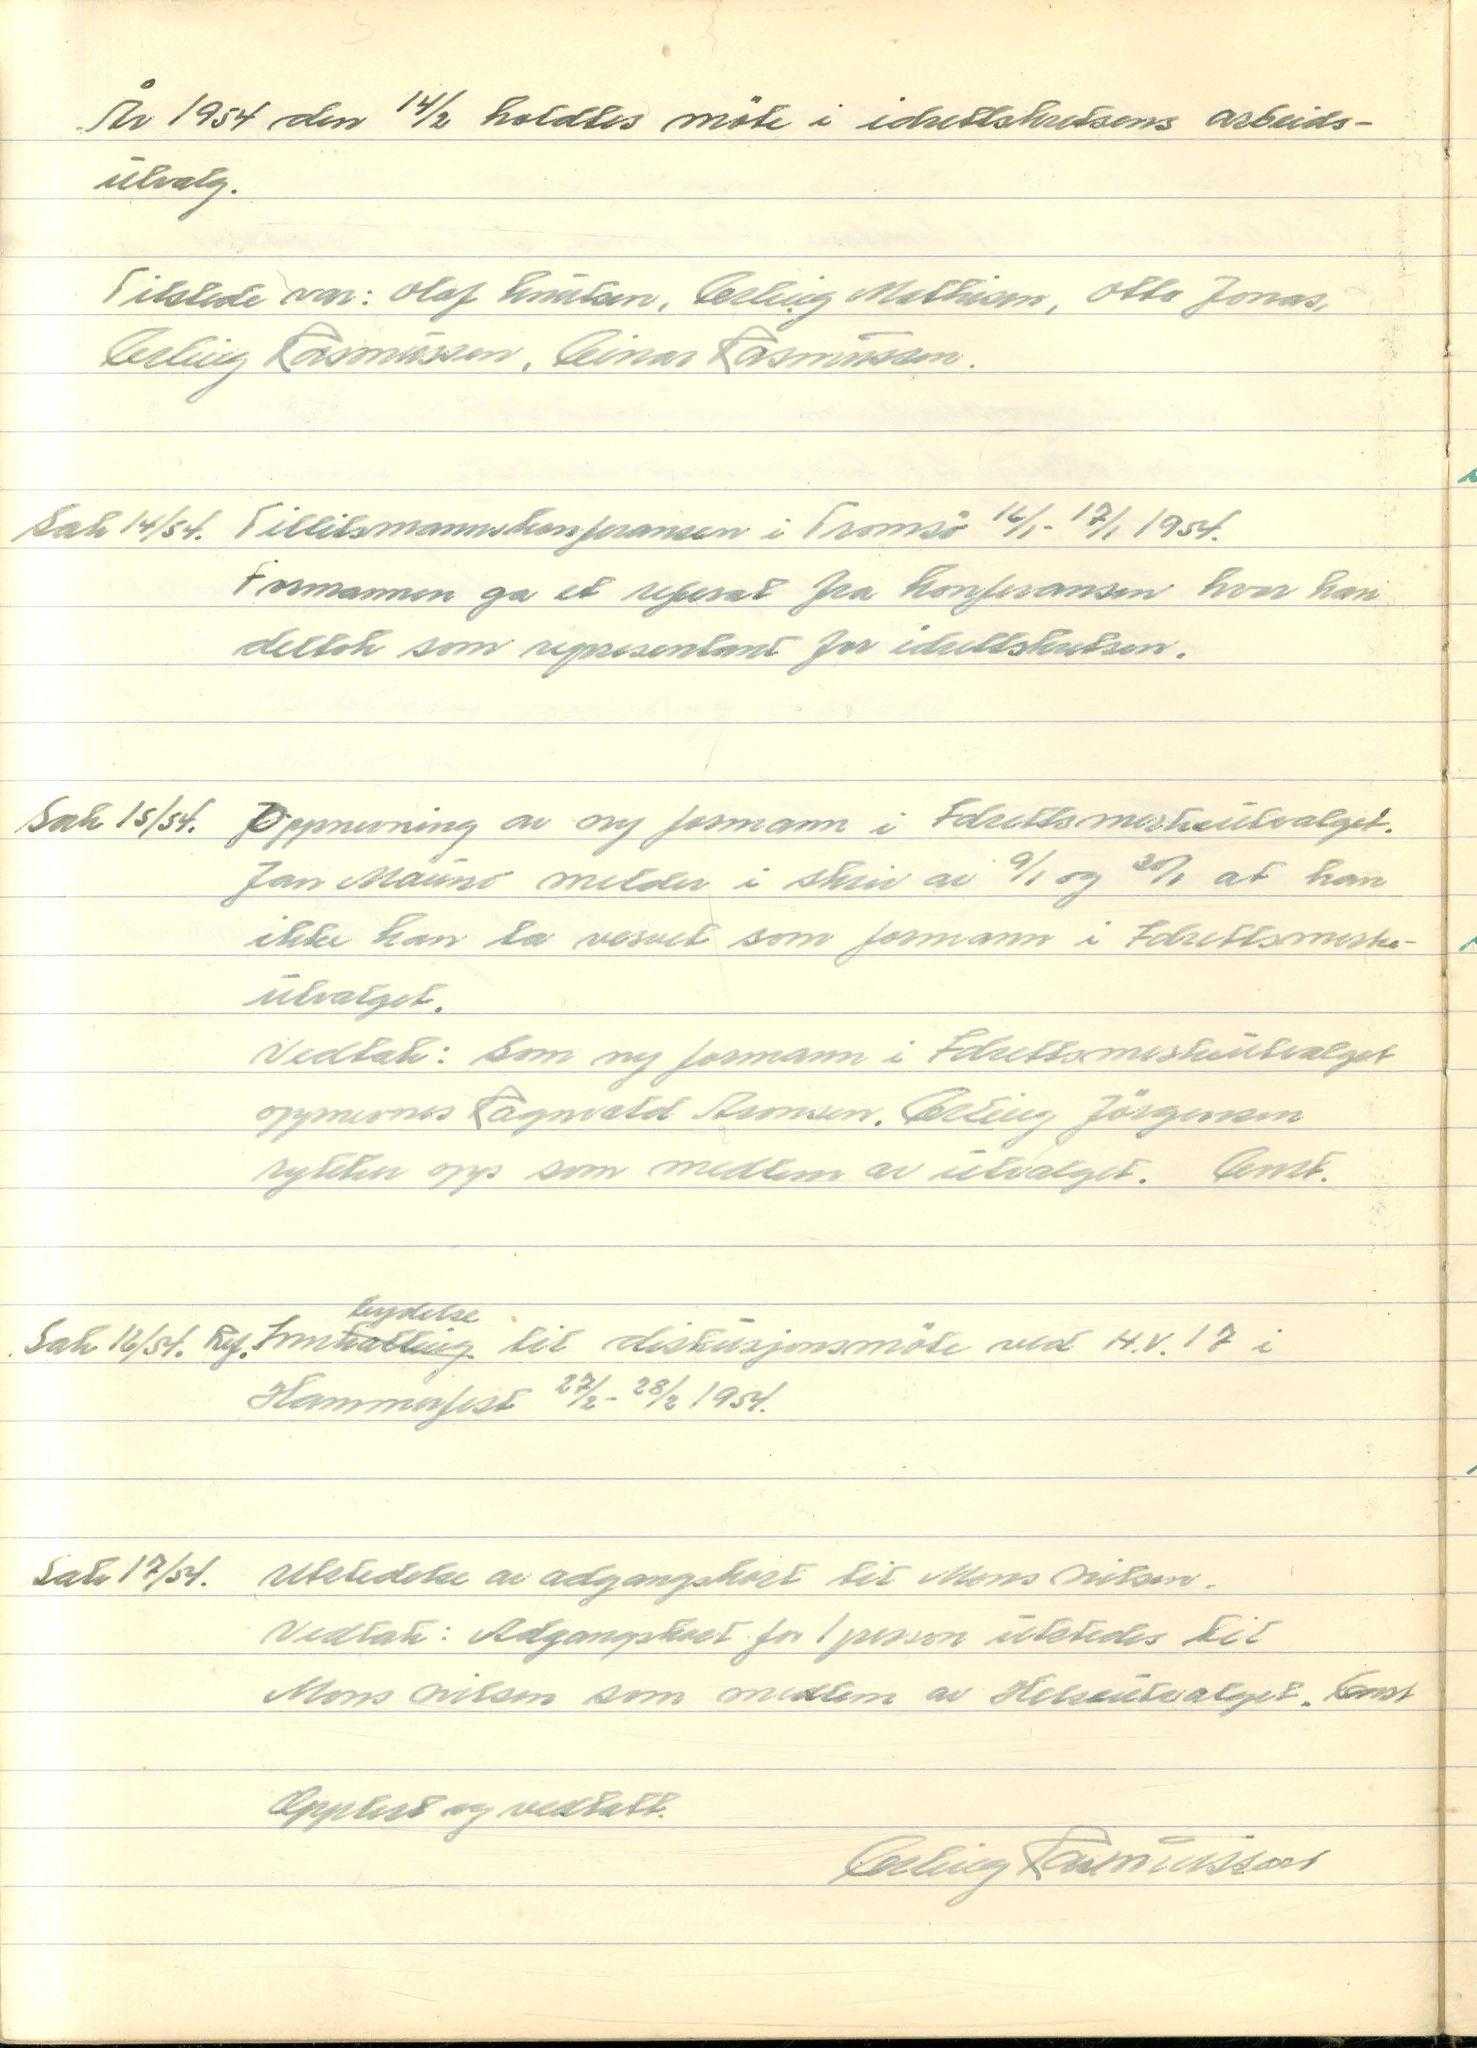 År 1954 den 14/2 holdtes möte i idrettskretsens arbeids-
utvalg.
Tilstede var: Olaf Knutsen, Erling Mathisen, Otto Jonas,
Erling Rasmussen, Einar Rasmussen.
Sak 14/54. Tillitsmannskonferansen i Tromsö 16/1 - 17/1 1954.
Formannen ga et referat fra konferansen hvor han
deltok som representant for idrettskretsen.
Sak 15/54. Oppnevning av ny formann i Idrettsmerkeutvalget.
Jan Maunö melder i skriv av 9/1 og 30/1 at han
ikke kan ta vervet som formann i Idrettsmerke-
utvalget.
Vedtak: Som ny formann i Idrettsmerkeutvalget
oppnevnes Ragnvald Aronsen. Erling Jörgensen
rykker opp som medlem av utvalget. Enst.
Sak 16/54. Ref. Innbydelse til diskusjonsmöte ved H.V. 17 i
Hammerfest 27/2 - 28/2 1954.
Sak 17/54. Utstedelse av adgangskort til Mons Nilsen.
Vedtak: Adgangskort for 1 person utstedes til
Mons Nilsen som medlem av Helseutvalget. Enst
Opplest og vedtatt.
Erling Rasmussen